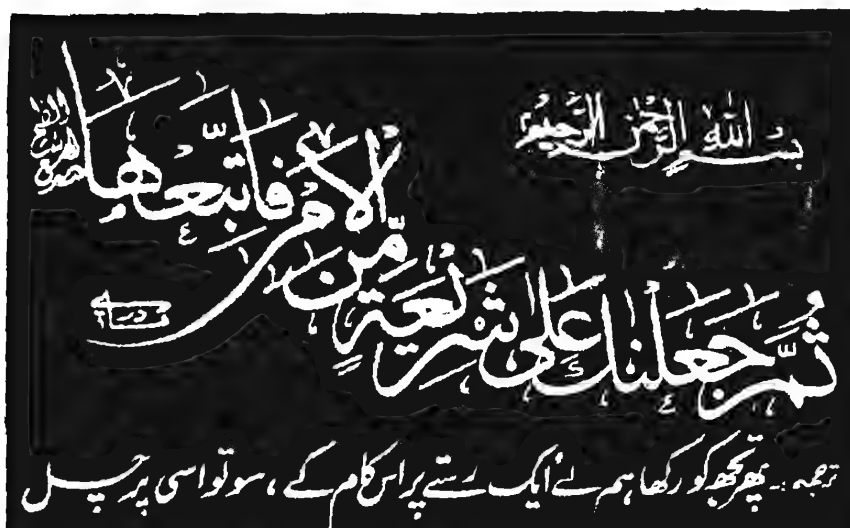 بسم الله الرحمن الرحيم
ثُمَّ جَعَلْنٰكَ عَلٰى شَرِيْعَةٍ مِّنَ الْاَمْرِ فَاتَّبِعْهَا
ترجمہ :۔ پھر تجھ کو رکھا ہم نے ایک رستے پر اس کام کے ، سو تو اسی پر چل